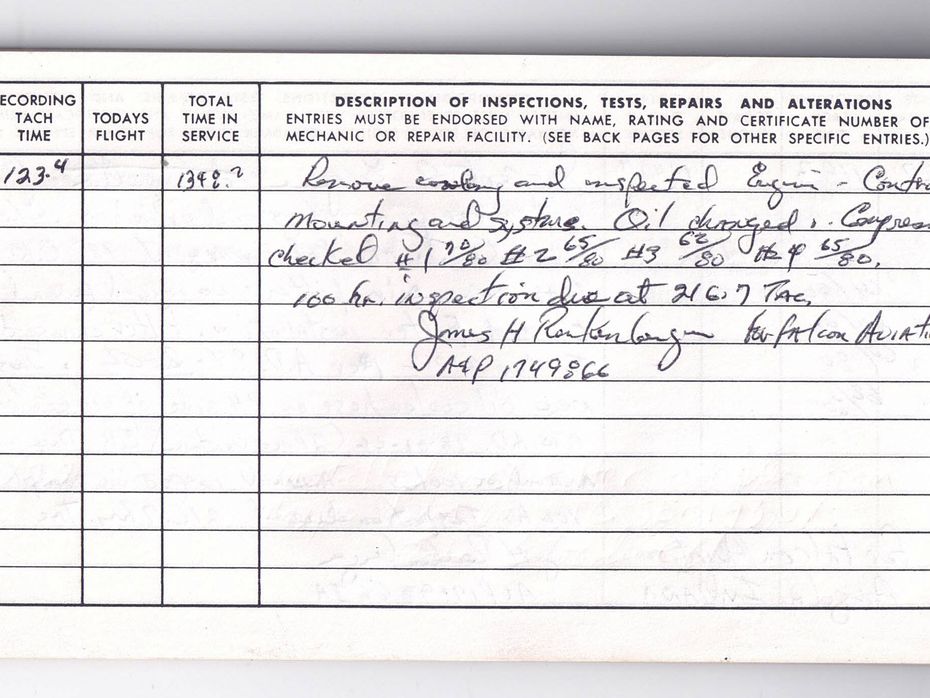 ECORDING TACH TIME
TODAYS FLIGHT
TOTAL TIME IN SERVICE
DESCRIPTION OF INSPECTIONS, TESTS, REPAIRS AND ALTERATIONS
ENTRIES MUST BE ENDORSED WITH NAME, RATING AND CERTIFICATE NUMBER OF
MECHANIC OR REPAIR FACILITY. (SEE BACK PAGES FOR OTHER SPECIFIC ENTRIES.)
123.4 1348.2 Remove cowling and inspected Engine - Contro
Mounting and systems. Oil changed. Compress
checked #1 70/80 #2 65/80 #3 62/80 #4 65/80.
100 hr. inspection due at 216.7 TAC.
James H for FAlcon AviAti
A&P 1749866